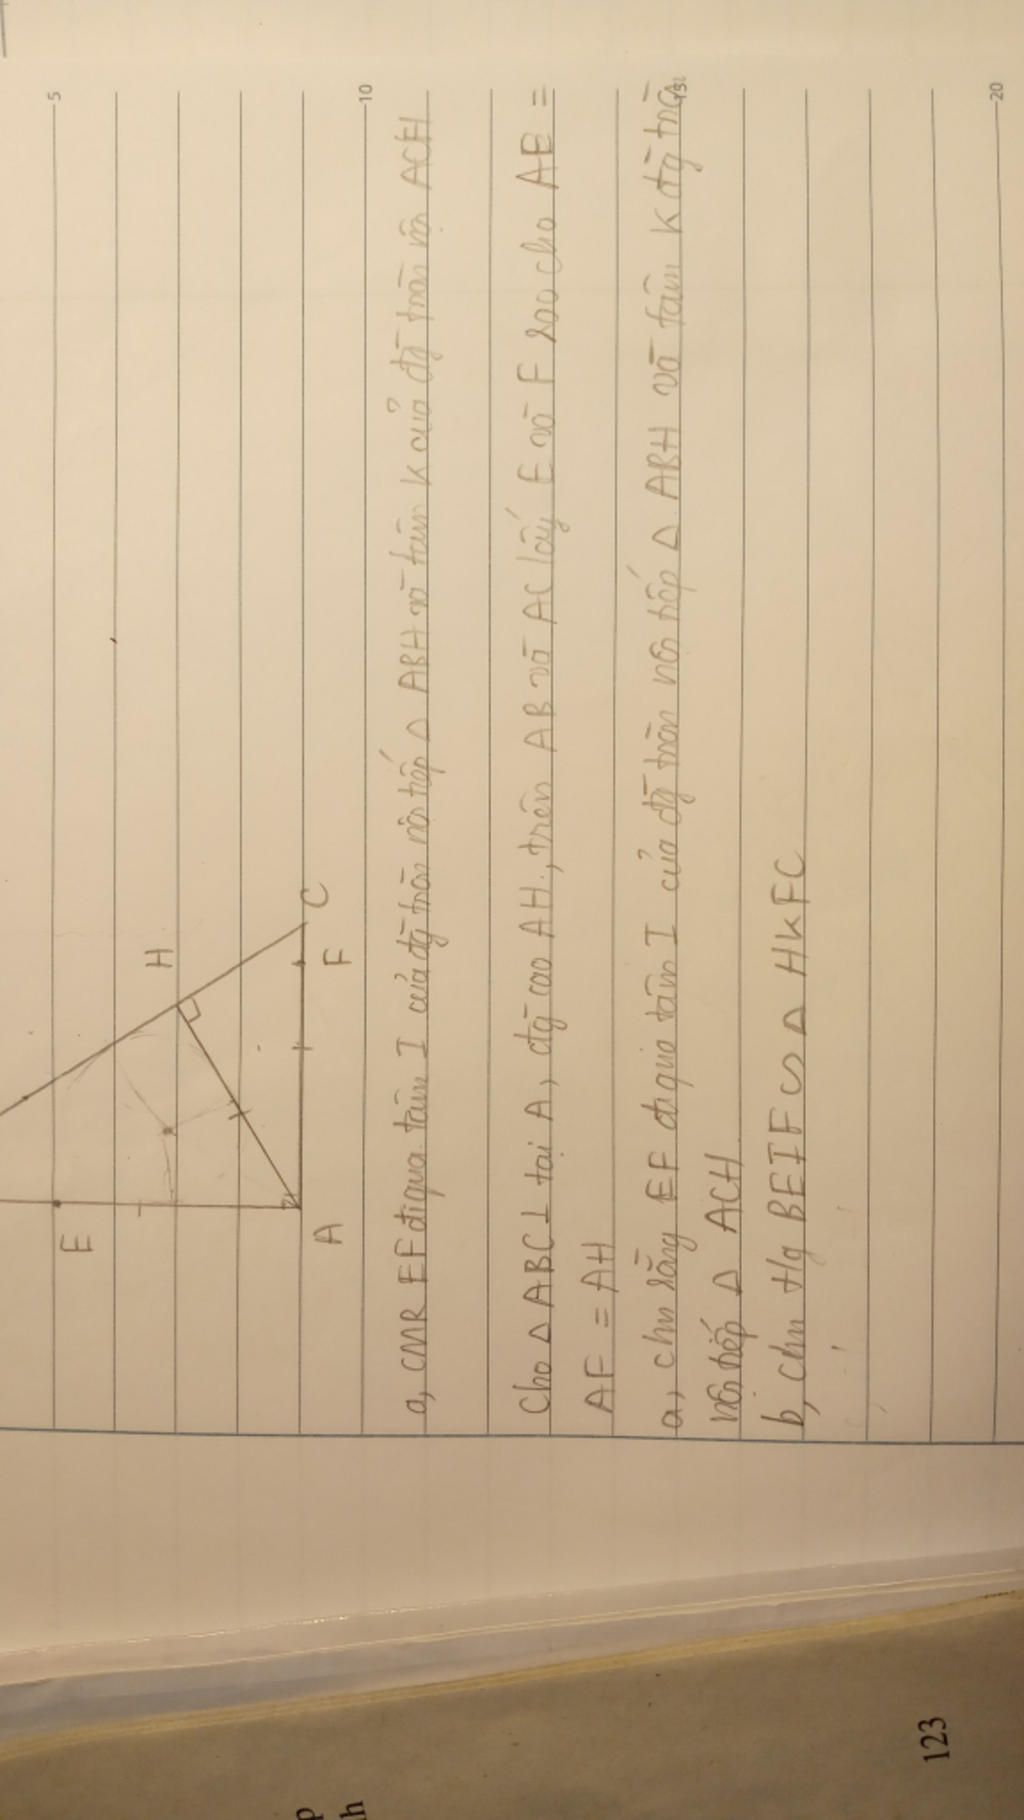 5
10
15
20
E
A
H
C
F
a, CMR EF đi qua tâm I của đg tròn nội tiếp △ ABH và tâm K của đg tròn nội ACH
Cho △ ABC ⊥ tại A, đg cao AH, trên AB và AC lấy E và F sao cho AE =
AF = AH
a, chm rằng EF đi qua tâm I của đg tròn nội tiếp △ ABH và tâm K đg tròn
nội tiếp △ ACH
b, chm Hg BEIF ∽ △ HKFC
123
p
h